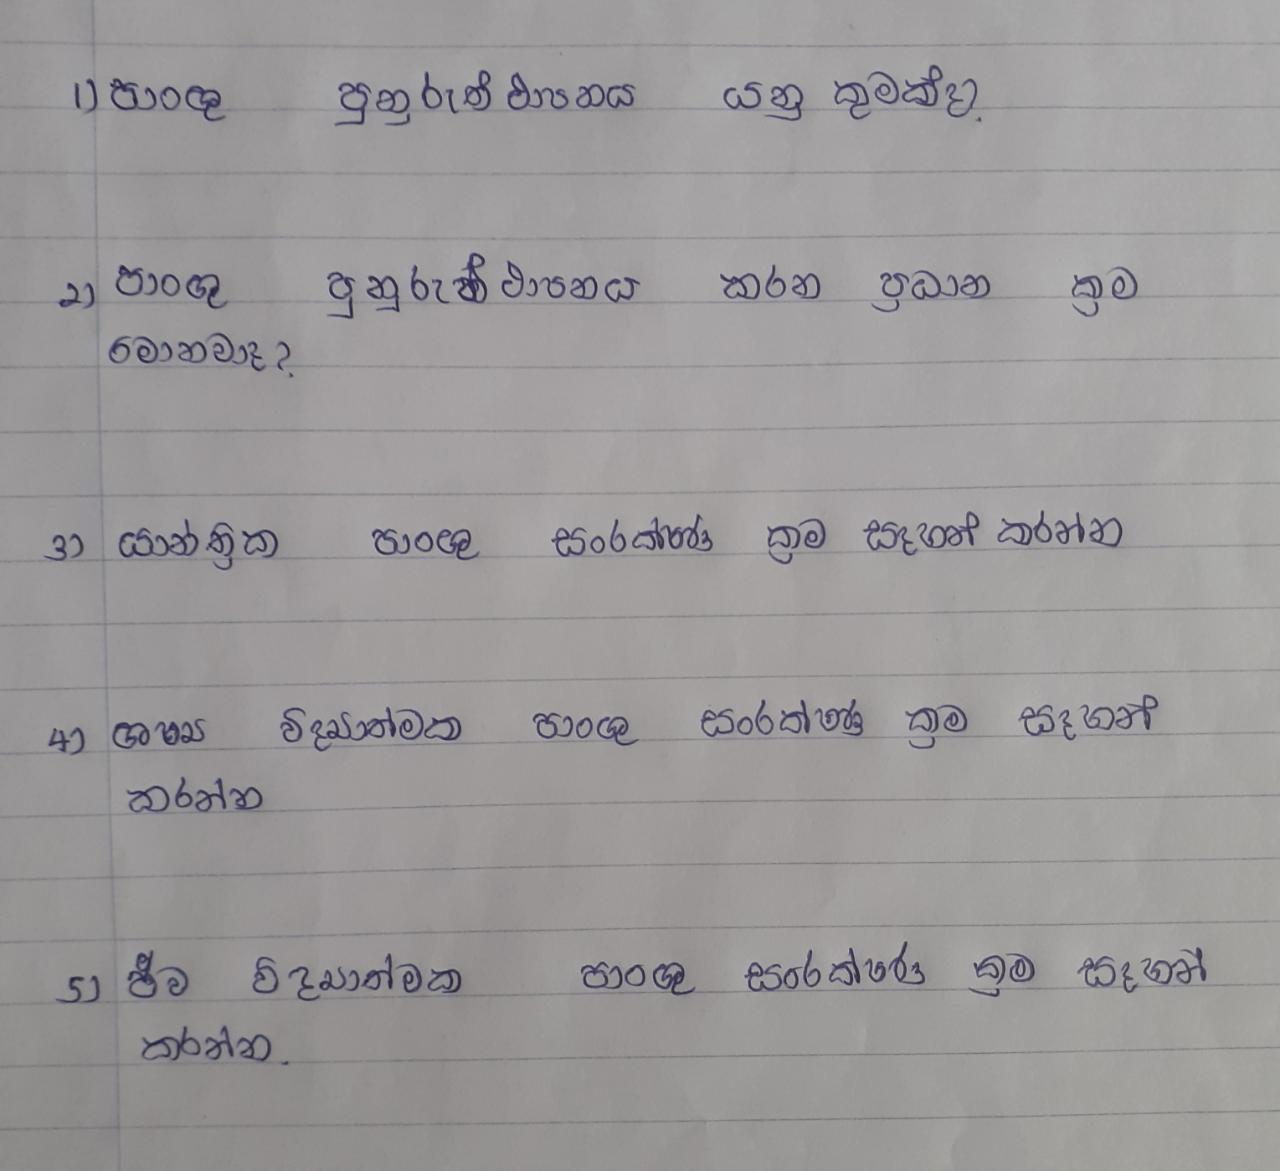 1) පාංශු පුනුරුත්ථාපනය යනු කුමක්ද?
2) පාංශු පුනුරුත්ථාපනය කරන ප්‍රධාන ක්‍රම
මොනවාද?
3) යාන්ත්‍රික පාංශු සංරක්ෂණ ක්‍රම සඳහන් කරන්න
4) ශෂ්‍ය විද්‍යාත්මක පාංශු සංරක්ෂණ ක්‍රම සඳහන්
කරන්න
5) ජීව විද්‍යාත්මක පාංශු සංරක්ෂණ ක්‍රම සඳහන්
කරන්න.